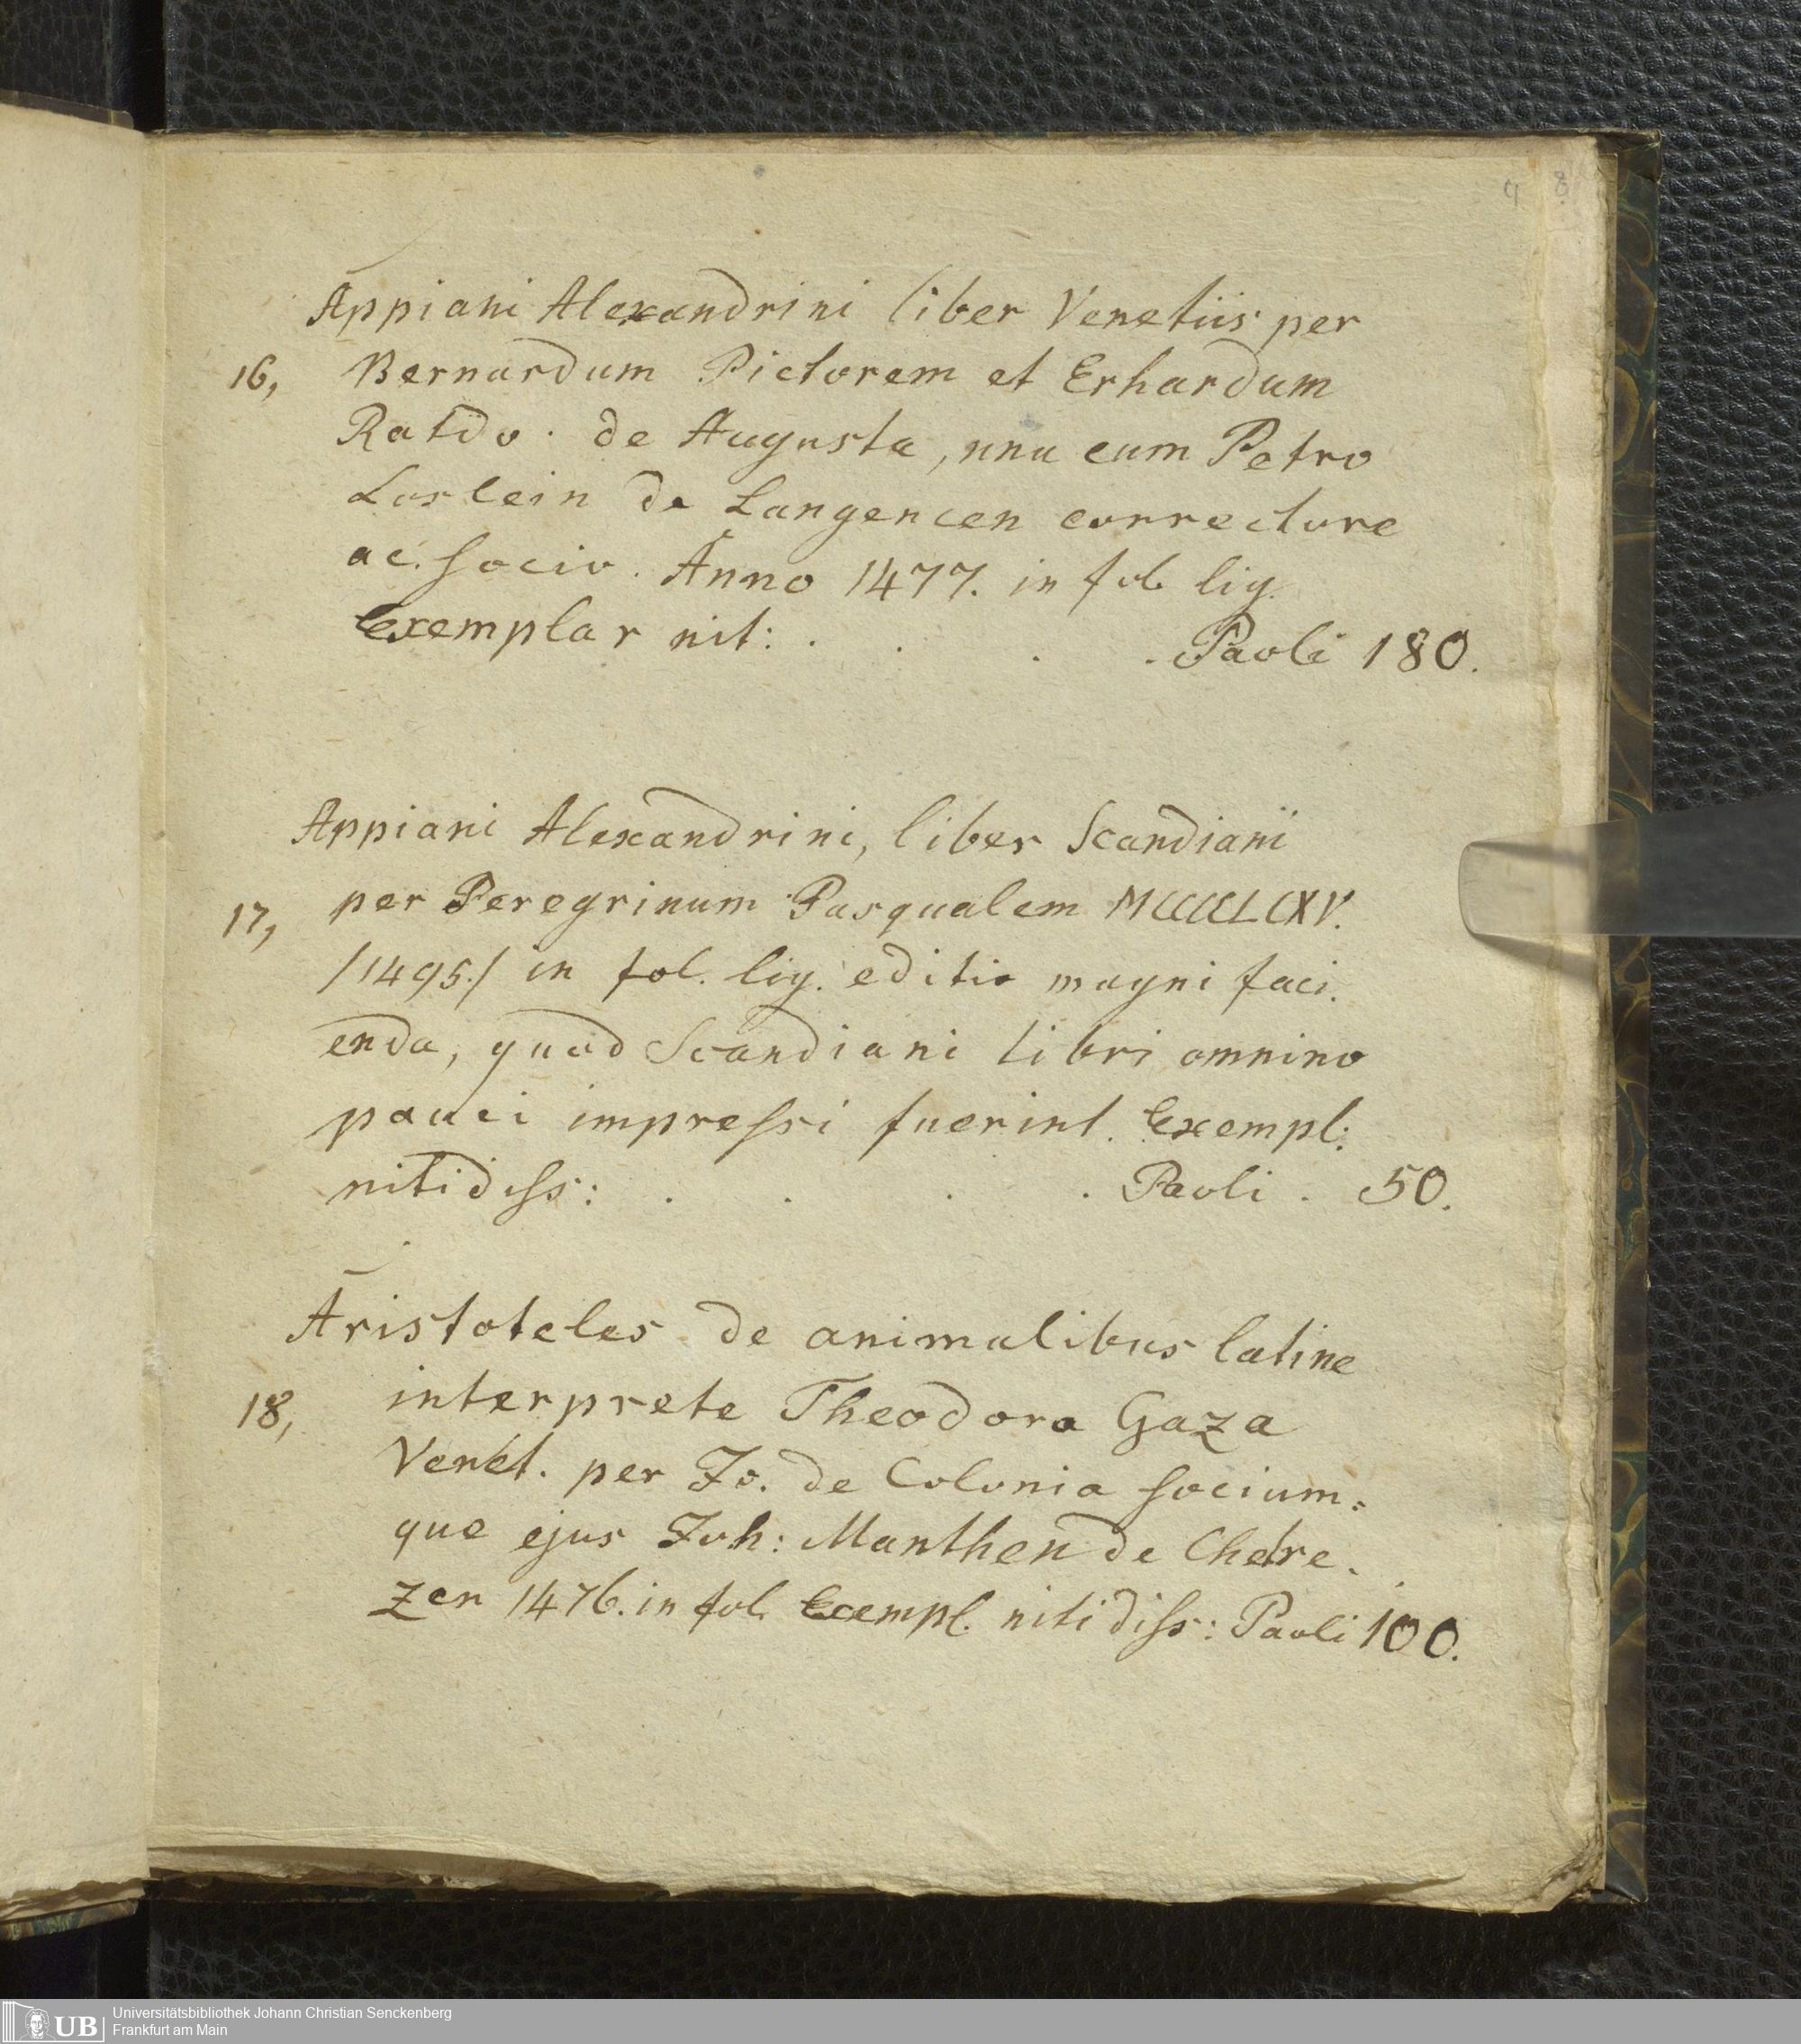 9 8
Appiani Alexandrini liber Venetiis per
16, Bernardum Pictorem et Erhardum
Ratdo. de Augusta, una cum Petro
Loslein de Langencen correctore
ac. socio. Anno 1477. in fol. lig.
Exemplar nit: . . . . Paoli 180.
Appiani Alexandrini, liber Scandiani
17, per Peregrinum Pasqualem MCCCCLCXV.
/1495./ in fol. lig. editio magni faci.
enda, quod Scandiani libri omnino
pauci impressi fuerint. Exempl:
nitidiss: . . . . Paoli . 50.
Aristoteles de animalibus latine
18, interprete Theodora Gaza
Venet. per Jo. de Colonia socium=
que ejus Joh: Manthen de Chere.
zen 1476. in fol. Exempl. nitidiss: Paoli 100.
UB Universitätsbibliothek Johann Christian Senckenberg
Frankfurt am Main